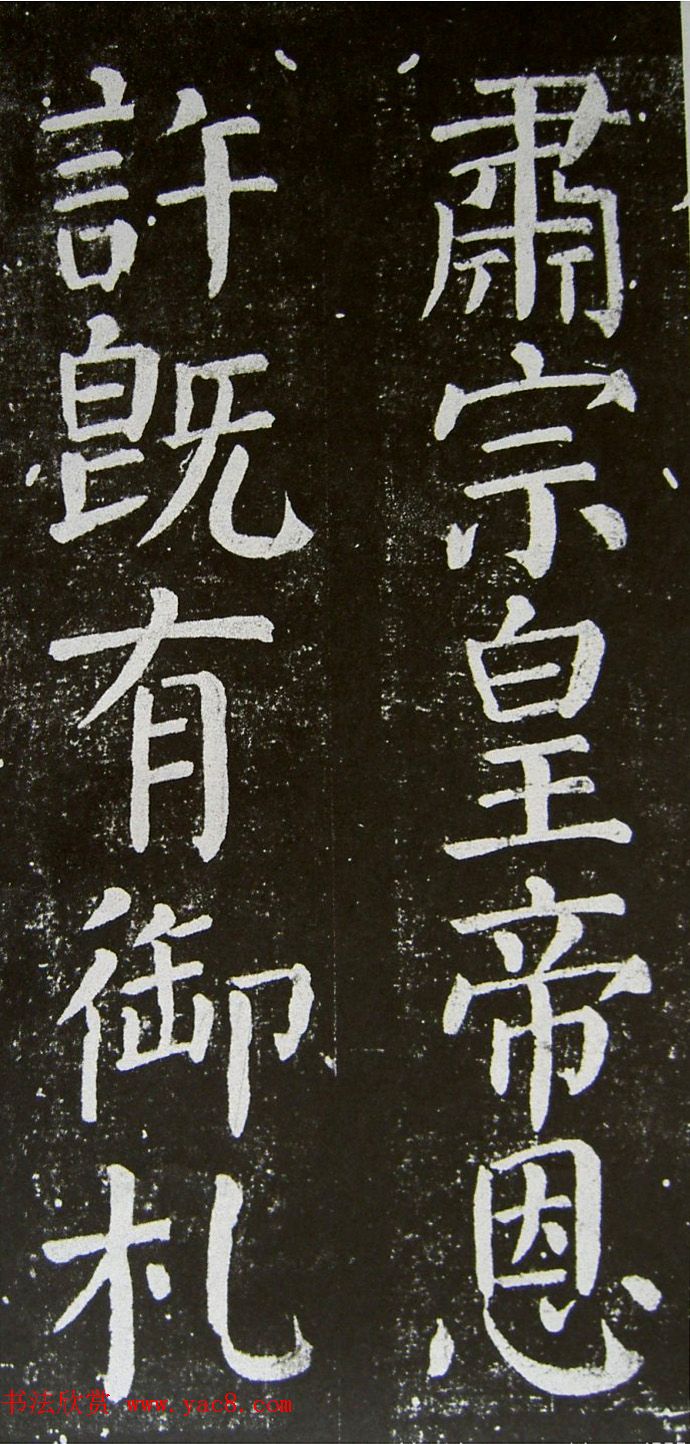 肅宗皇帝恩
許既有御札
书法欣赏 www.yac8.com